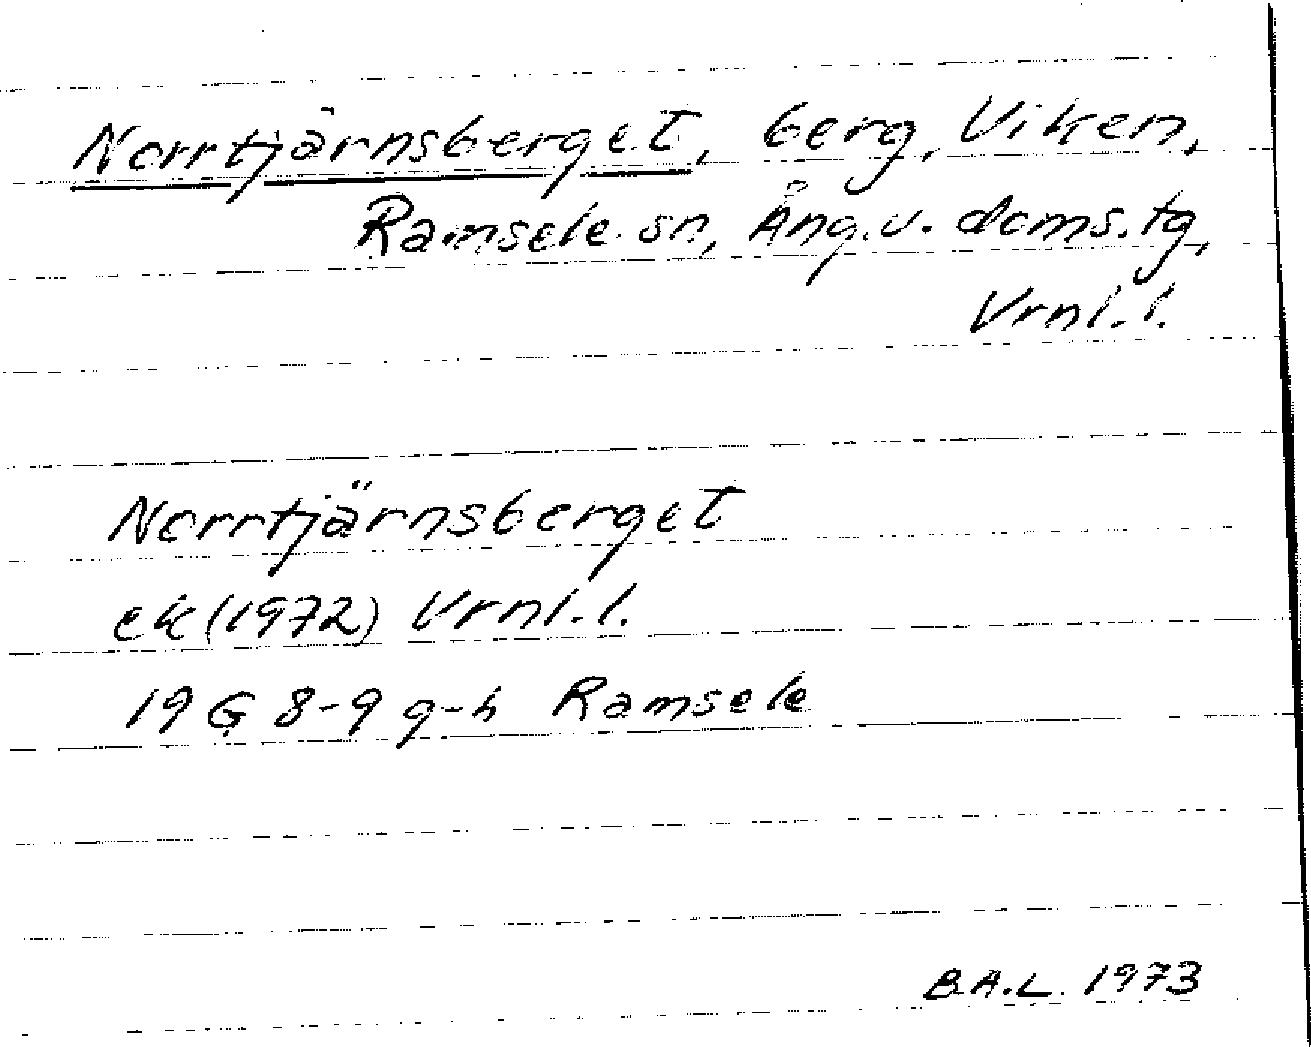 Norrtjärnsberget, berg, Viken,
Ramsele sn, Ång.v. doms.tg,
Vrnl.l.
Norrtjärnsberget
ek(1972) Vrnl.l.
19 G 8-9 g-h Ramsele
B.A.L. 1973